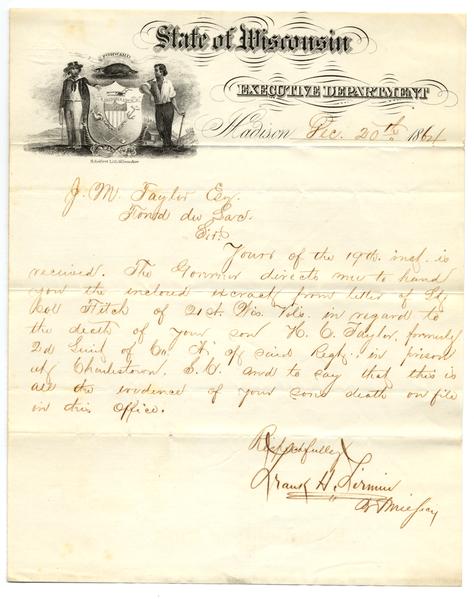 State of Wisconsin
FORWARD
EXECUTIVE DEPARTMENT
Madison Dec. 20th 1864
J. M. Taylor Esq.
Fond du Lac.
Sir
Yours of the 19th inst. is
received. The Governor directs me to hand
you the inclosed extract from letter of Lt
Col Fitch of 21st. Wis. Vols. in regard to
the death of your son H. C. Taylor, formerly
2d Lieut of Co. of said Regt. in prison
at Charlestown, S.C. and to say that this is
all the evidence of your sons death on file
in this Office.
Respectfully
Frank H. Firmin